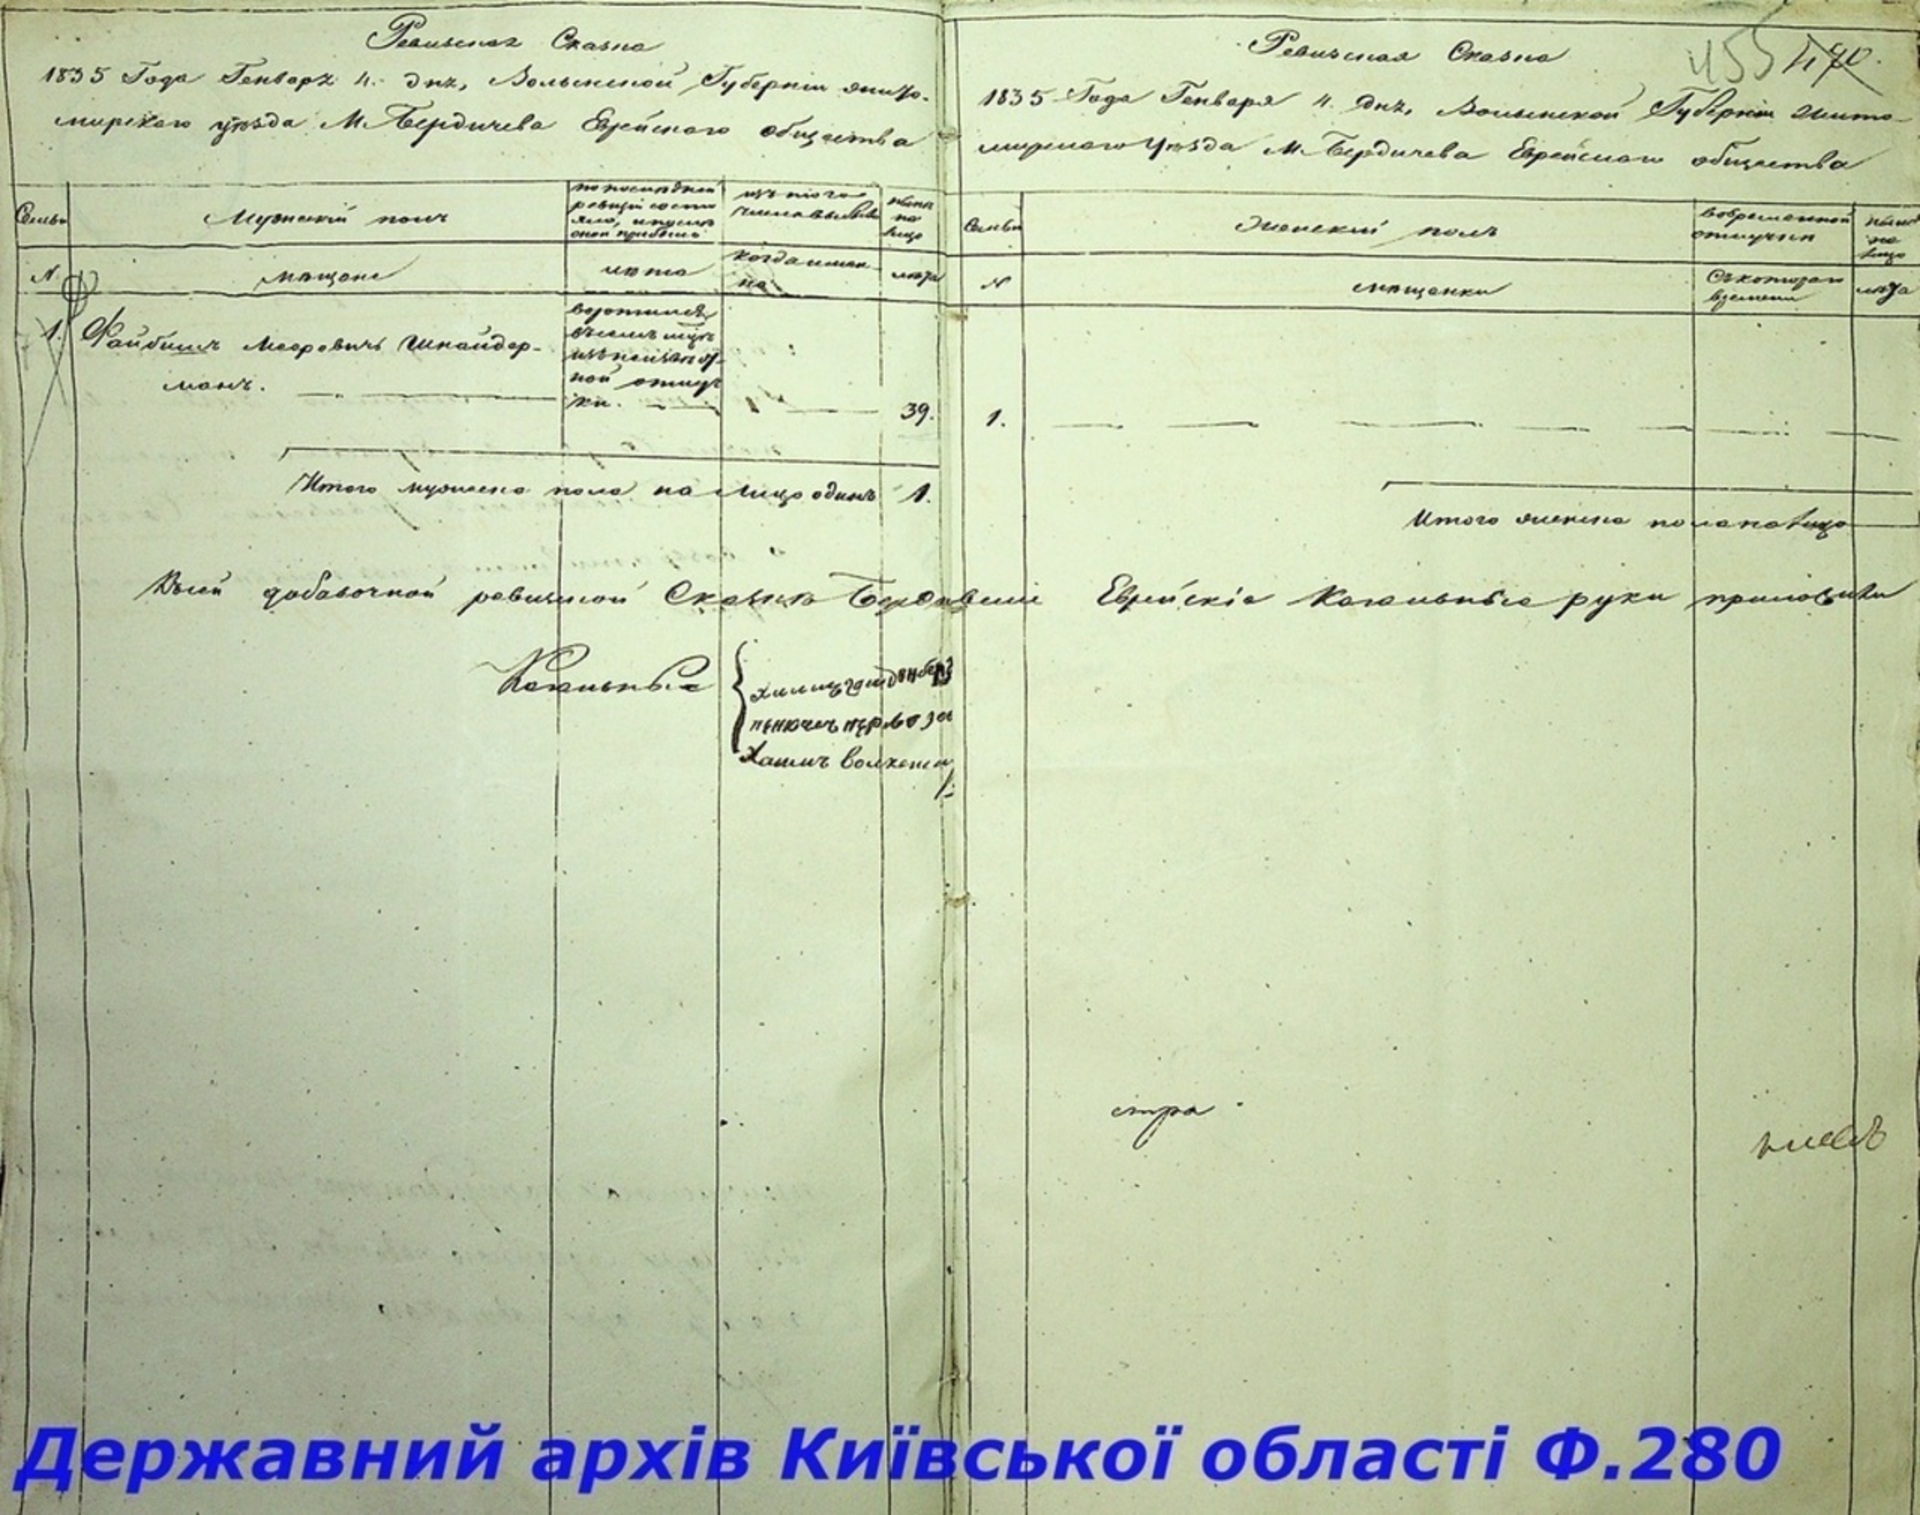 Ревизская Сказка
1835 Года Генваря 4. дня, Волынской Губернии жито-
мирскаго уезда М. Бердичева Еврейского общества
Семьи
Мужеский полъ
по последней
ревизіи состо
яло, и после
оной прибыло
изъ того
числа выбыло
ныне
на
лицо
№
мещане
лета
когда имен
но
лета
1.
Файбишъ Мееровичъ Шнайдер-
манъ.
воротился
въ семъ году
изъ неизвест
ной отлуч
ки.
39.
Итого мужеска пола на лицо одинъ 1.
455 470.
Ревизская Сказка
1835 Года Генваря 4. дня, Волынской Губернии жито-
мирскаго уезда М. Бердичева Еврейскаго общества
Семьи
Женский полъ
во временной
отлучке
ныне
на
лицо
№
мещанки
Съ котораго
времени
лета
1.
Итого женска пола на лицо
Къ сей добавочной ревизской Сказке Бердичевские Еврейскіе Кагальные руки приложили
Кагальные
Хаимъ
стра
Державний архів Київської області Ф.280